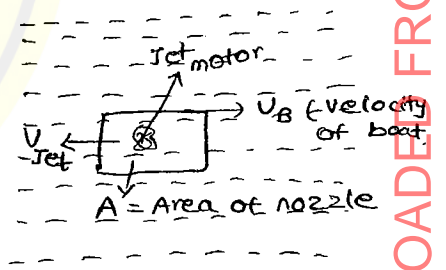 Jet motor
VB (velocity
of boat.
V Jet
A = Area of nozzle
OADED FRO